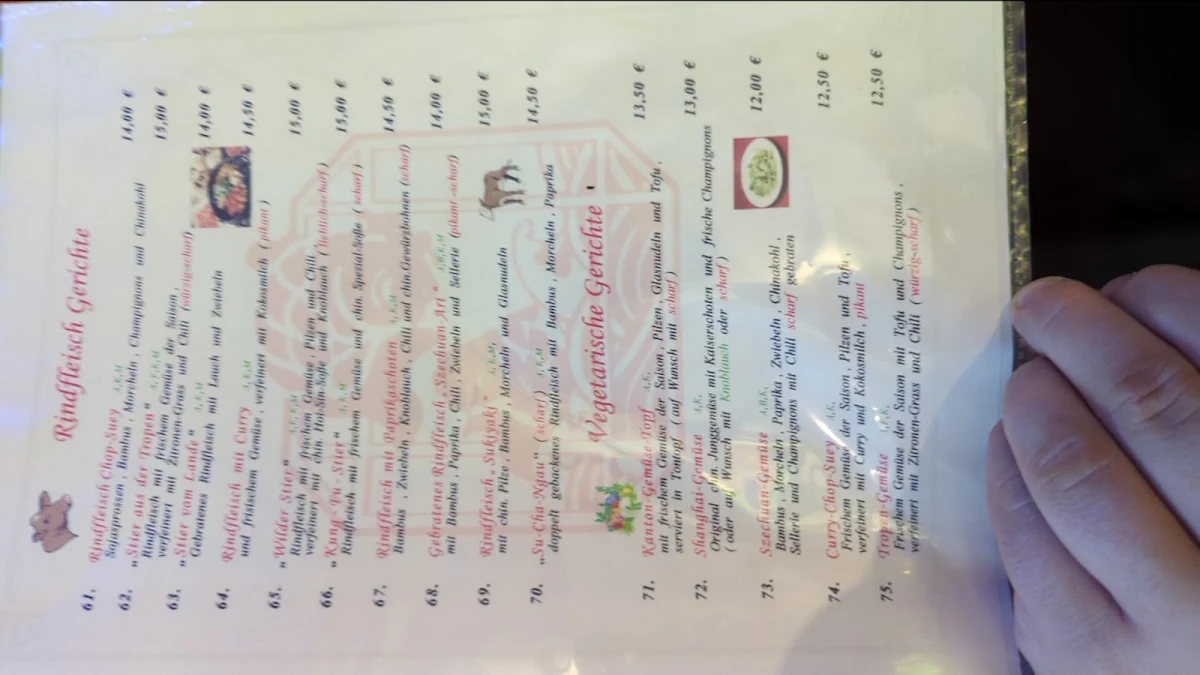 Rindfleisch Gerichte
61. Rindfleisch Chop-Suey A,F,K,M 14,00 €
Sojasprossen , Bambus , Morcheln , Champignons und Chinakohl
62. „Stier aus der Topen" A,F,K,M 15,00 €
Rindfleisch mit frischem Gemüse der Saison ,
verfeinert mit Zitronen-Grass und Chili (würzig-scharf)
63. „Stier vom Lande" A,K,M 14,00 €
Gebratenes Rindfleisch mit Lauch und Zwiebeln
64. Rindfleisch mit Curry A,K,M 14,50 €
und frisischem Gemüse , verfeinert mit Kokosmilch ( pikant )
65. „Wilder Stier" A,F,K,M 15,00 €
Rindfleisch mit frischem Gemüse , Pilzen und Chili ,
verfeinert mit chin. Hoi-Sin-Soße und Knoblauch ( lieblich-scharf )
66. „Kung-Fu-Stier" A,K,M 15,00 €
Rindfleisch mit frischem Gemüse und chin. Spezial-Soße ( scharf )
67. Rindfleisch mit Paprikaschoten A,K,M 14,50 €
Bambus , Zwiebeln , Knoblauch , Chili und chin.Gewürzbohnen (scharf)
68. Gebratenes Rindfleisch „Szechuan-Art" A,B,K,M 14,00 €
mit Bambus , Paprika , Chili , Zwiebeln und Sellerie (pikant-scharf)
69. Rindfleisch „Sukiyaki" A,K,M, 15,00 €
mit chin. Pilze , Bambus , Morcheln und Glasnudeln
70. „Su-Cha-Ngau" ( scharf ) A,K,M 14,50 €
doppelt gebackenes Rindfleisch mit Bambus , Morcheln , Paprika
Vegetarische Gerichte
71. Kanton-Gemüse-Topf A,K, 13,50 €
mit frischem Gemüse der Saison , Pilzen , Glasnudeln und Tofu ,
serviert in Tontopf ( auf Wunsch mit scharf )
72. Shanghai-Gemüse A,K, 13,00 €
Original chin. Junggemüse mit Kaiserschoten und frische Champignons
( oder auf Wunsch mit Knoblauch oder scharf )
73. Szechuan-Gemüse A,B,K, 12,00 €
Bambus , Morcheln , Paprika , Zwiebeln , Chinakohl ,
Sellerie und Champignons mit Chili scharf gebraten
74. Curry-Chop-Suey A,K, 12,50 €
Frischem Gemüse der Saison , Pilzen und Tofu ,
verfeinert mit Curry und Kokosmilch , pikant
75. Tropen-Gemüse A,F,K, 12,50 €
Frischem Gemüse der Saison mit Tofu und Champignons ,
verfeinert mit Zitronen-Grass und Chili ( würzig-scharf )